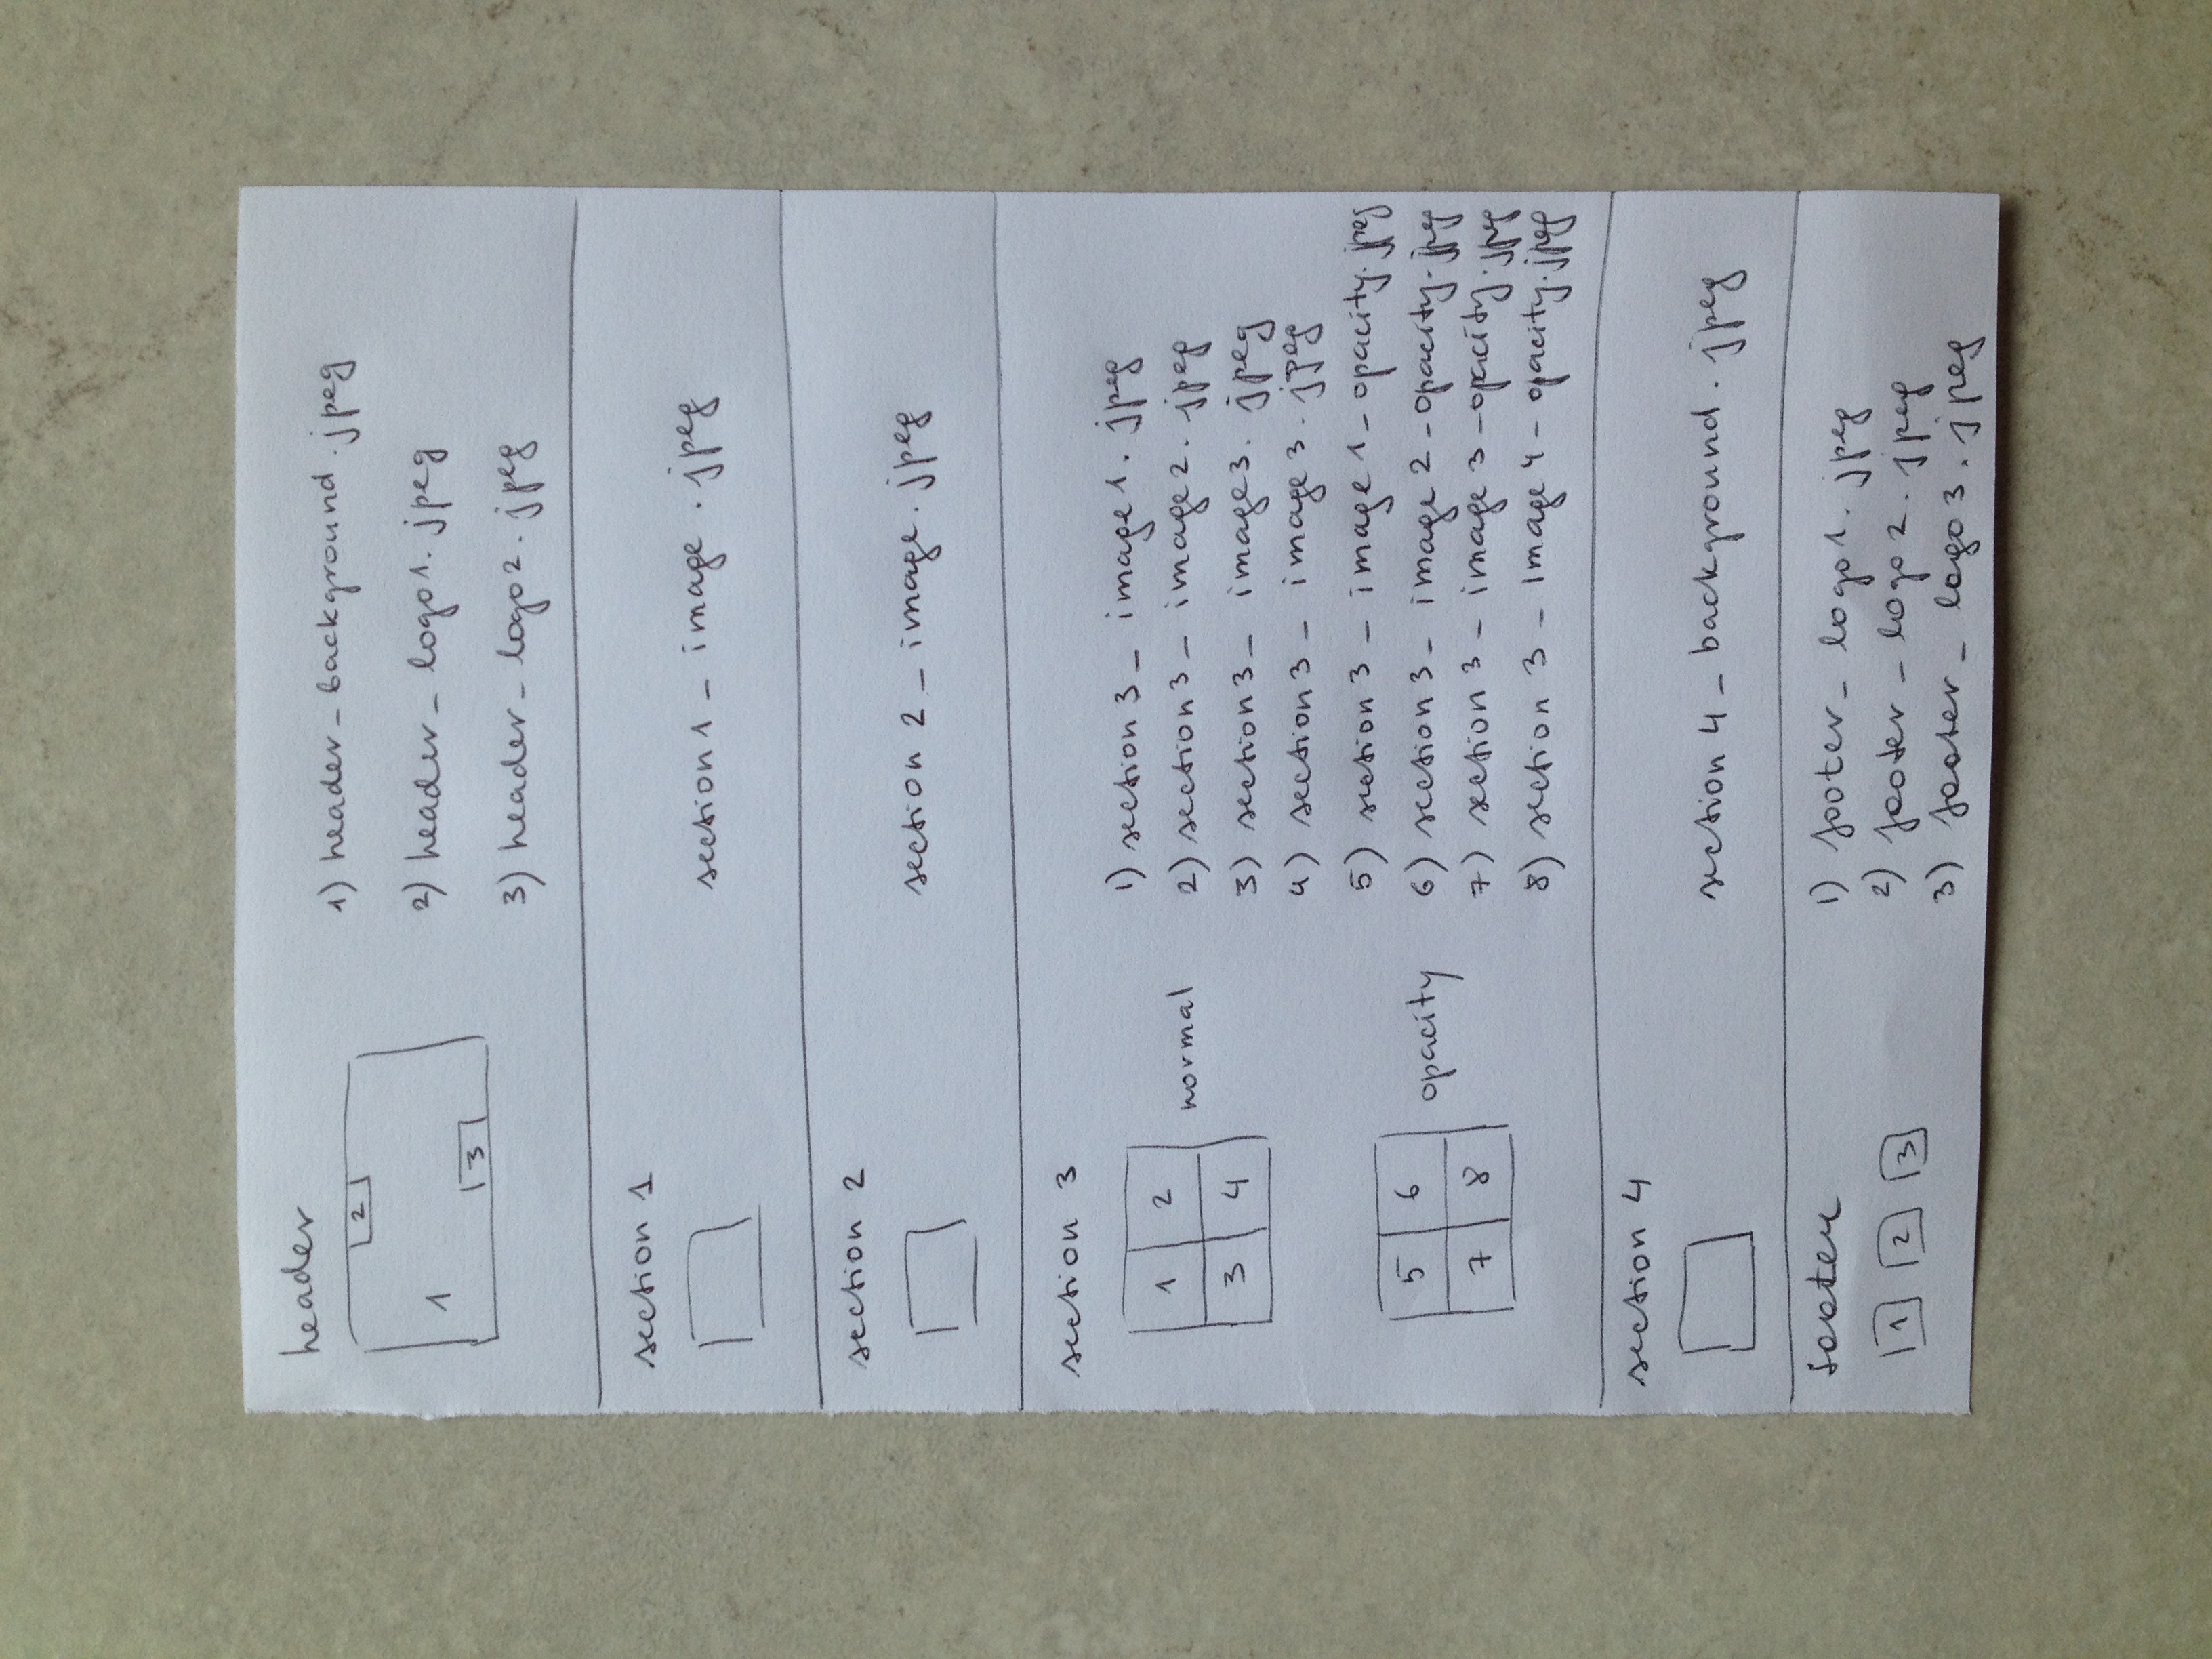 header
2
1
3
1) header_background.jpeg
2) header_logo1.jpeg
3) header_logo2.jpeg
section 1
section1_image.jpeg
section 2
section2_image.jpeg
section 3
1 2
3 4
normal
5 6
7 8
opacity
1) section3_image1.jpeg
2) section3_image2.jpeg
3) section3_image3.jpeg
4) section3_image3.jpeg
5) section3_image1_opacity.jpeg
6) section3_image2_opacity.jpeg
7) section3_image3_opacity.jpeg
8) section3_image4_opacity.jpeg
section 4
section4_background.jpeg
footer
1 2 3
1) footer_logo1.jpeg
2) footer_logo2.jpeg
3) footer_logo3.jpeg